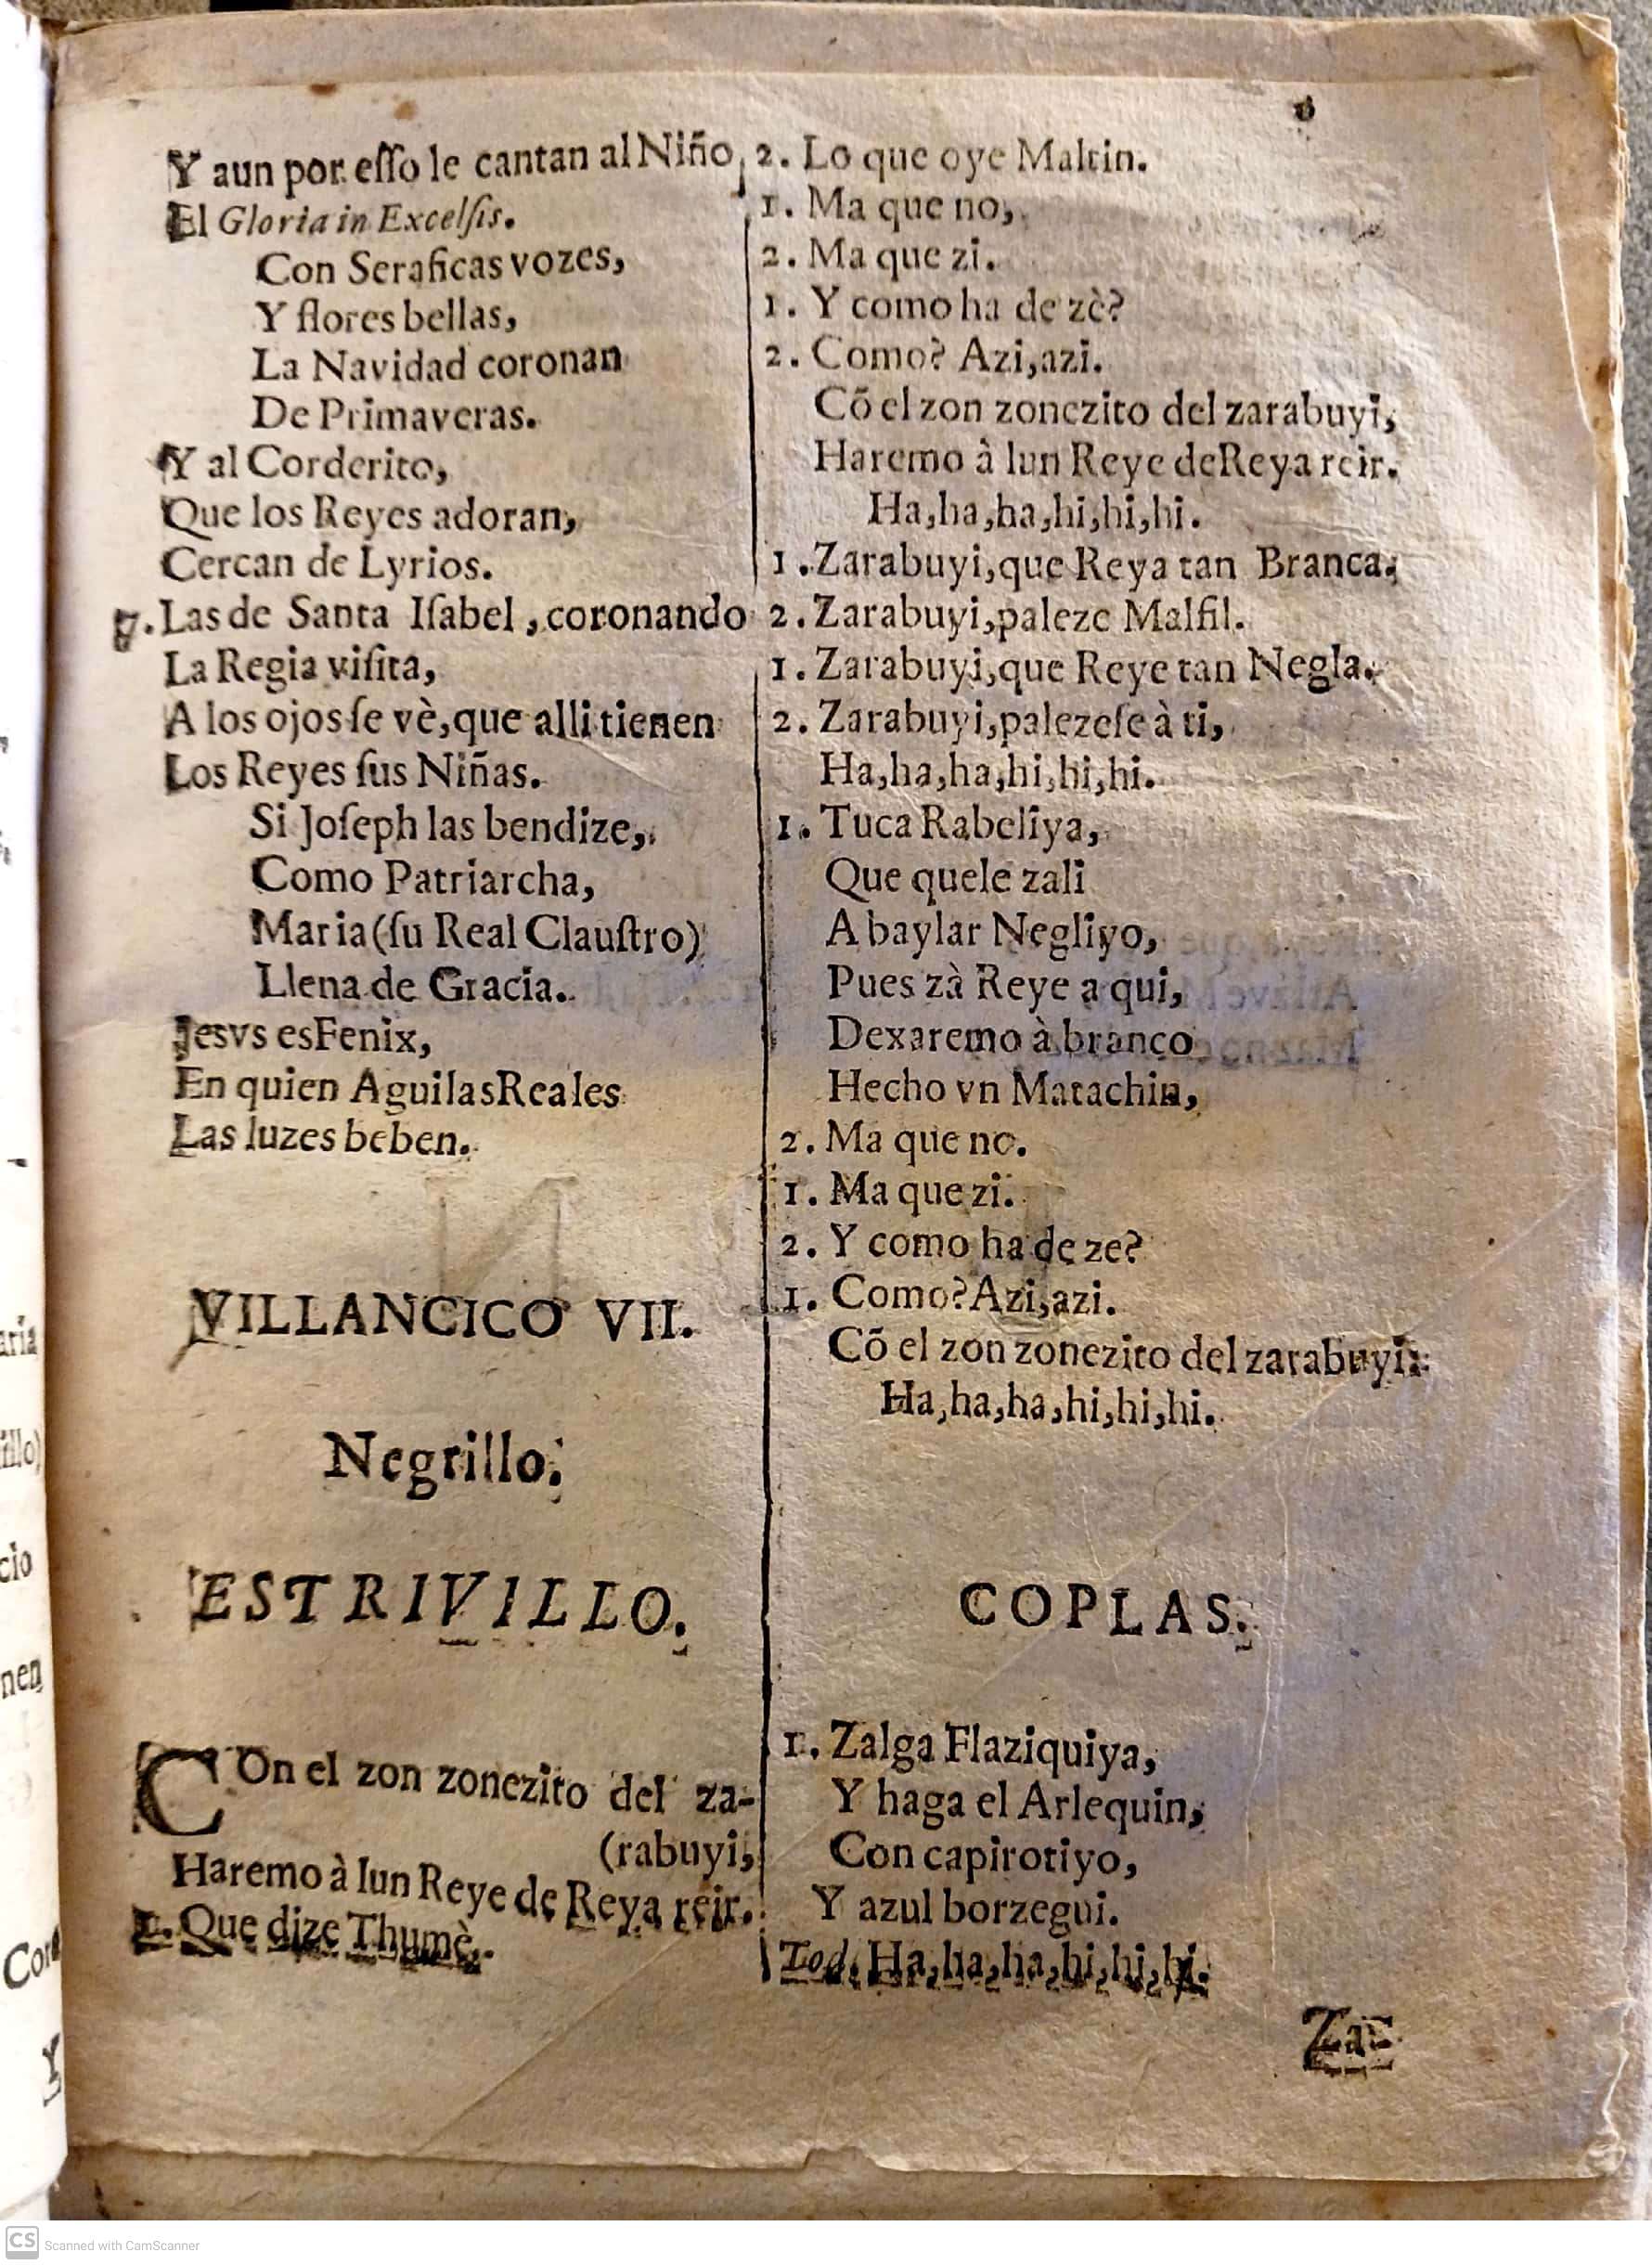 Y aun por esso le cantan al Niño,
El Gloria in Excelsis.
Con Seraficas vozes,
Y flores bellas,
La Navidad coronan
De Primaveras.
Y al Corderito,
Que los Reyes adoran,
Cercan de Lyrios.
7. Las de Santa Isabel, coronando
La Regia visita,
A los ojos se vè, que alli tienen
Los Reyes sus Niñas.
Si Joseph las bendize,
Como Patriarcha,
Maria (su Real Claustro)
Llena de Gracia.
Jesvs es Fenix,
En quien Aguilas Reales
Las luzes beben.
VILLANCICO VII.
Negrillo.
ESTRIVILLO.
COn el zon zonezito del za-
(rabuyi,
Haremo à lun Reye de Reya reir.
1. Que dize Thumè.
2. Lo que oye Maltin.
1. Ma que no,
2. Ma que zi.
1. Y como ha de zè?
2. Como? Azi, azi.
Cõ el zon zonezito del zarabuyi,
Haremo à lun Reye de Reya reir.
Ha, ha, ha, hi, hi, hi.
1. Zarabuyi, que Reya tan Branca.
2. Zarabuyi, paleze Malfil.
1. Zarabuyi, que Reye tan Negla.
2. Zarabuyi, palezese à ti,
Ha, ha, ha, hi, hi, hi.
1. Tuca Rabeliya,
Que quele zali
A baylar Negliyo,
Pues zà Reye a qui,
Dexaremo à branco
Hecho vn Matachin,
2. Ma que no.
1. Ma que zi.
2. Y como ha de ze?
1. Como? Azi, azi.
Cõ el zon zonezito del zarabuyi:
Ha, ha, ha, hi, hi, hi.
COPLAS.
1. Zalga Flaziquiya,
Y haga el Arlequin,
Con capirotiyo,
Y azul borzegui.
Tod. Ha, ha, ha, hi, hi, hi.
Za-
Scanned with CamScanner